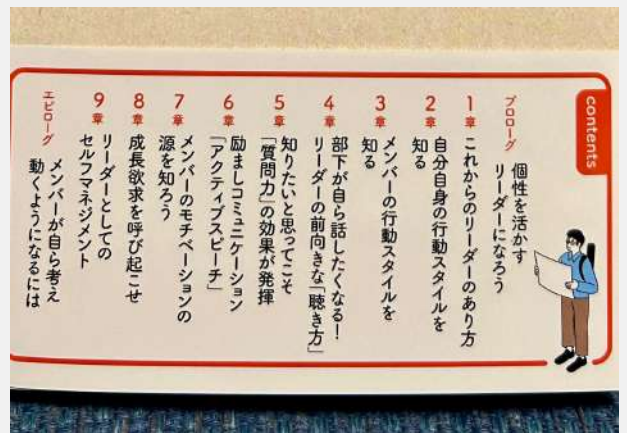 contents
プロローグ
個性を活かす
リーダーになろう
1章 これからのリーダーのあり方
2章 自分自身の行動スタイルを
知る
3章 メンバーの行動スタイルを
知る
4章 部下が自ら話したくなる!
リーダーの前向きな「聴き方」
5章 知りたいと思ってこそ
「質問力」の効果が発揮
6章 励ましコミュニケーション
「アクティブスピーチ」
7章 メンバーのモチベーションの
源を知ろう
8章 成長欲求を呼び起こせ
9章 リーダーとしての
セルフマネジメント
エピローグ
メンバーが自ら考え
動くようになるには